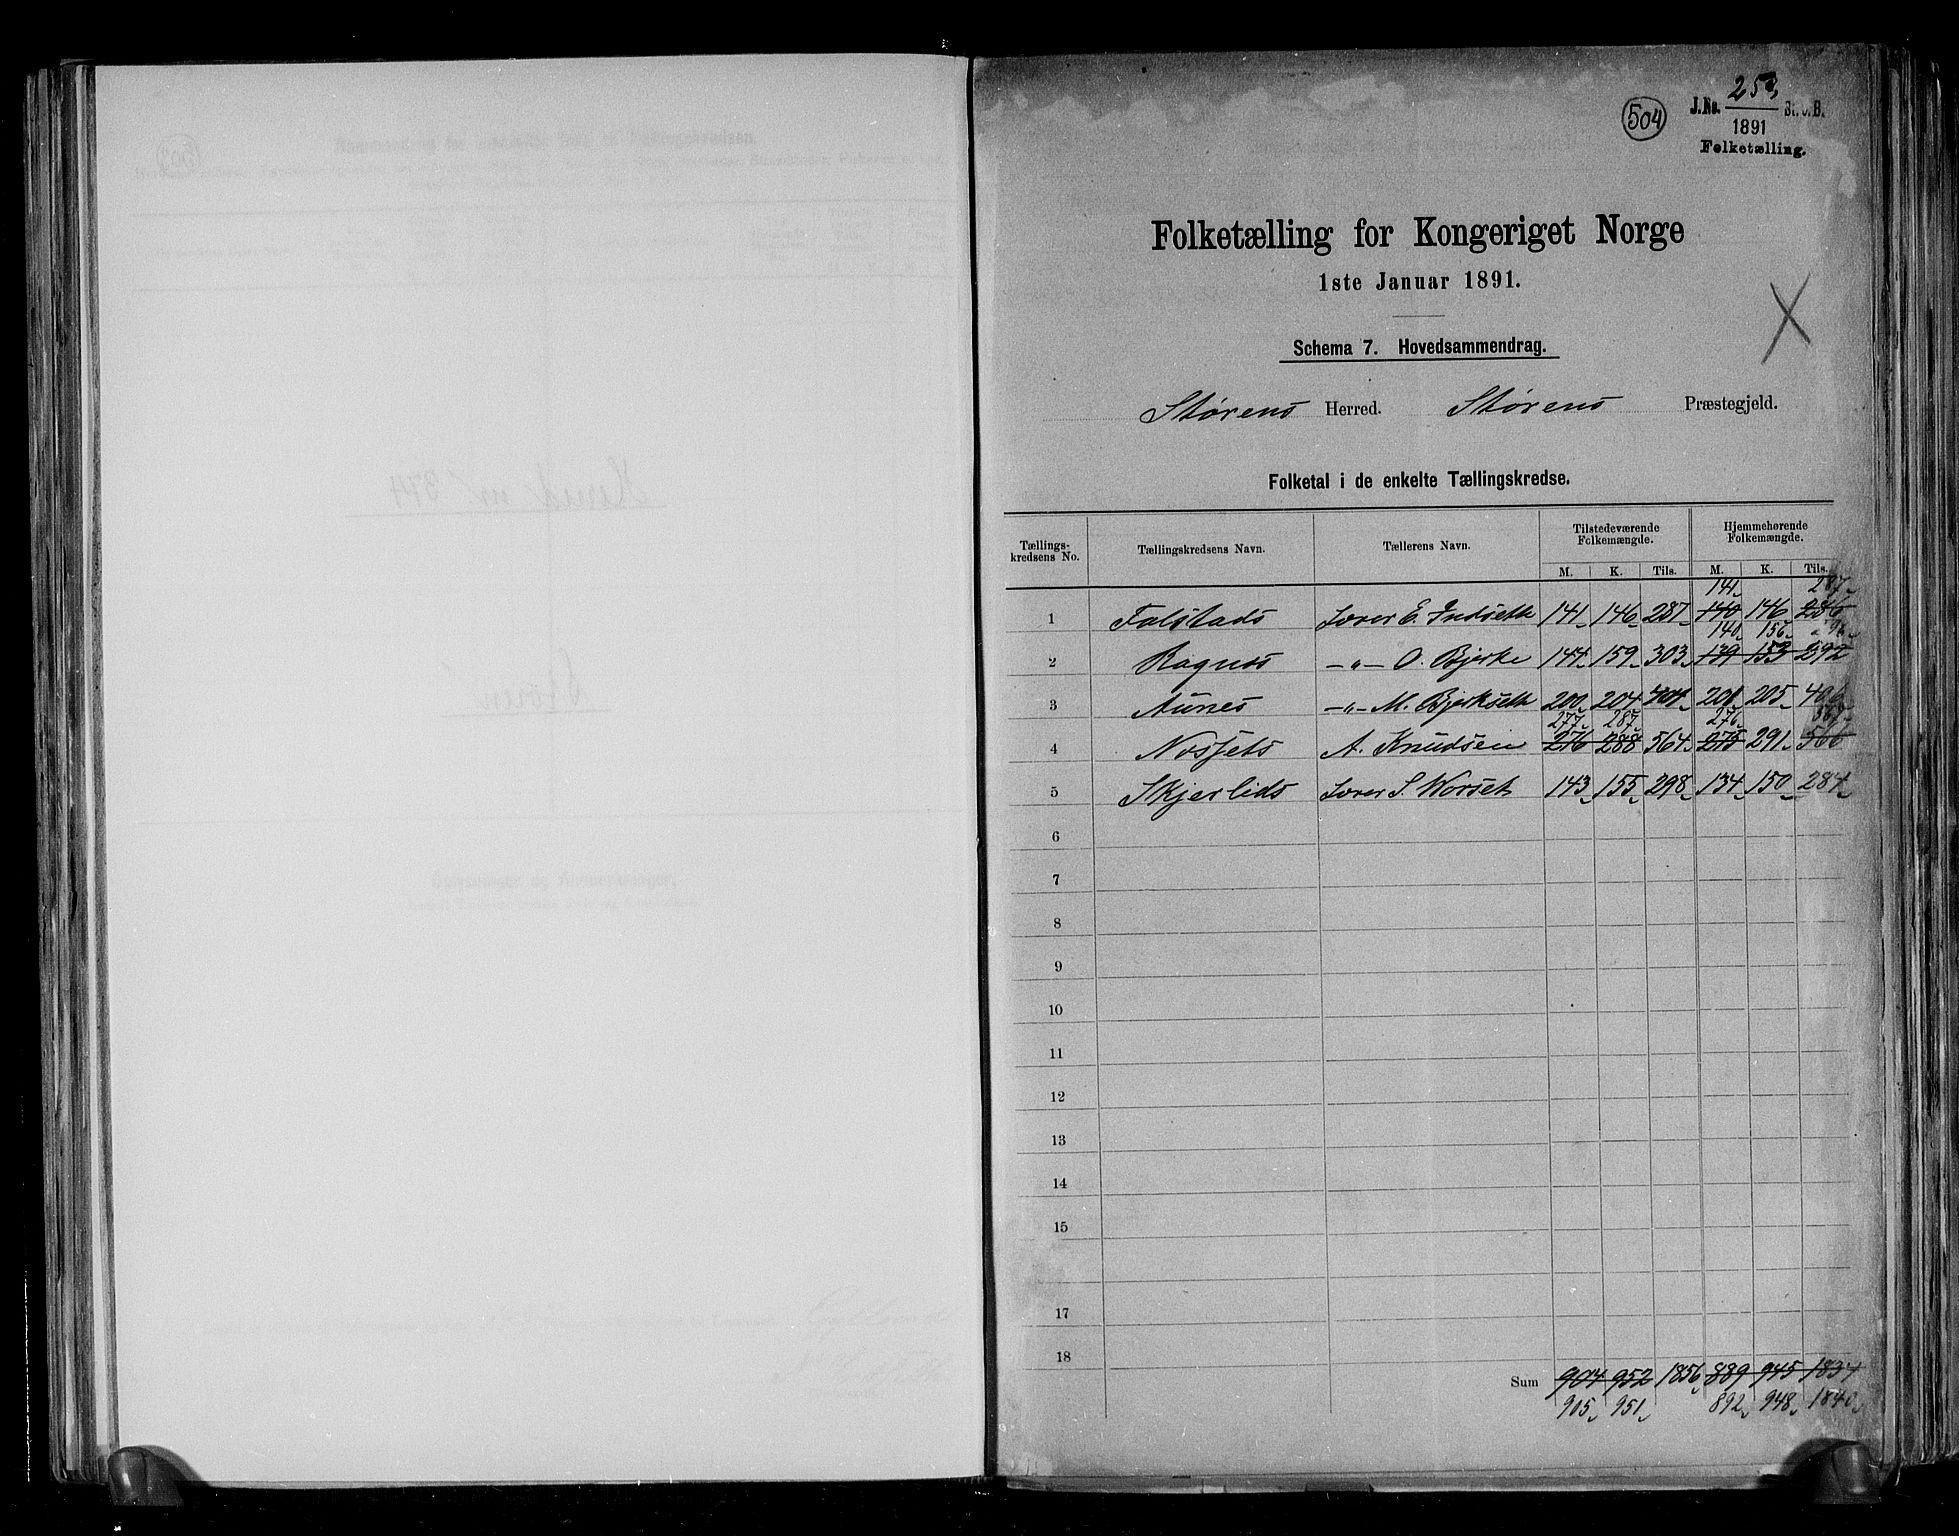 504
J.No. 253 St.C.B.
1891
Folketælling.
Folketælling for Kongeriget Norge
1ste Januar 1891.
Schema 7. Hovedsammendrag.
Størens Herred. Størens Præstegjeld.
Folketal i de enkelte Tællingskredse.
Tællings-kredsens No. Tællingskredsens Navn. Tællerens Navn. Tilstedeværende Folkemængde. Hjemmehørende Folkemængde.
M. K. Tils. M. K. Tils.
141 287
1 Folstads Lærer E. Indseth 141 146 287 140 146 286
140 156
2 Rognes —"— O. Bjerke 144 159 303 139 153 292
3 Aunes —"— M. Bjerkseth 200 204 404 201 205 406
277 287 276 567
4 A. Knudsen 276 288 564 275 291 566
5 Skjerlids Lærer S. Worset 143 155 298 134 150 284
6
7
8
9
10
11
12
13
14
15
17
18
Sum 904 952 1856 889 945 1834
905 951 892 948 1840